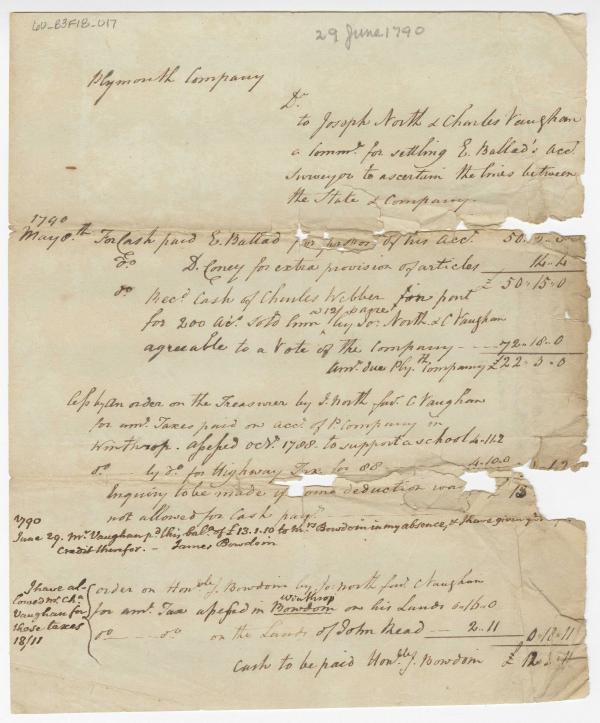 60_B3F18_017
29 June 1790
Plymouth Company
Dr.
to Joseph North & Charles Vaughan
a Commee. for settling E. Ballad's acct.
Surveyor to ascertain the lines between
the State & Company.
1790
May 8th To Cash paid E. Ballad of his Acct. 50
Do D. Coney for extra provision of articles 14-4
£ 50-15-0
do Recd. Cash of Charles Webber in part
@ 12/ acre
for 200 acs. sold him by Jos. North & C Vaughan
agreeable to a Vote of the Company 72-18-0
amt. due Plyth. Company £22-3-0
less by An order on the Treasurer by J. North favr. C Vaughan
for amt. Taxes paid on acct. of P Company in
Winthrop. assessed Octr. 1788 to support a school 4-11-2
do by do for Highway Tax for 88 4-10-0
Enquiry to be made if some deduction was
not allowed for Cash paymt.
1790
June 29. Mr. Vaughan pd. this balce. of £13.1.10 to Mrs. Bowdoin in my absence, & I have given
Credit therefor. - James Bowdoin
I have al-
lowed Mr. Chs.
Vaughan for
those taxes
18/11
order on Honble J. Bowdoin by Jos. North favr. C Vaughan
Winthrop
for amt. Tax assessed in Bowdoin on his Lands 0-16-0
do do on the Lands of John Mead 2-11
0-18-11
Cash to be paid Honble J. Bowdoin £ 12